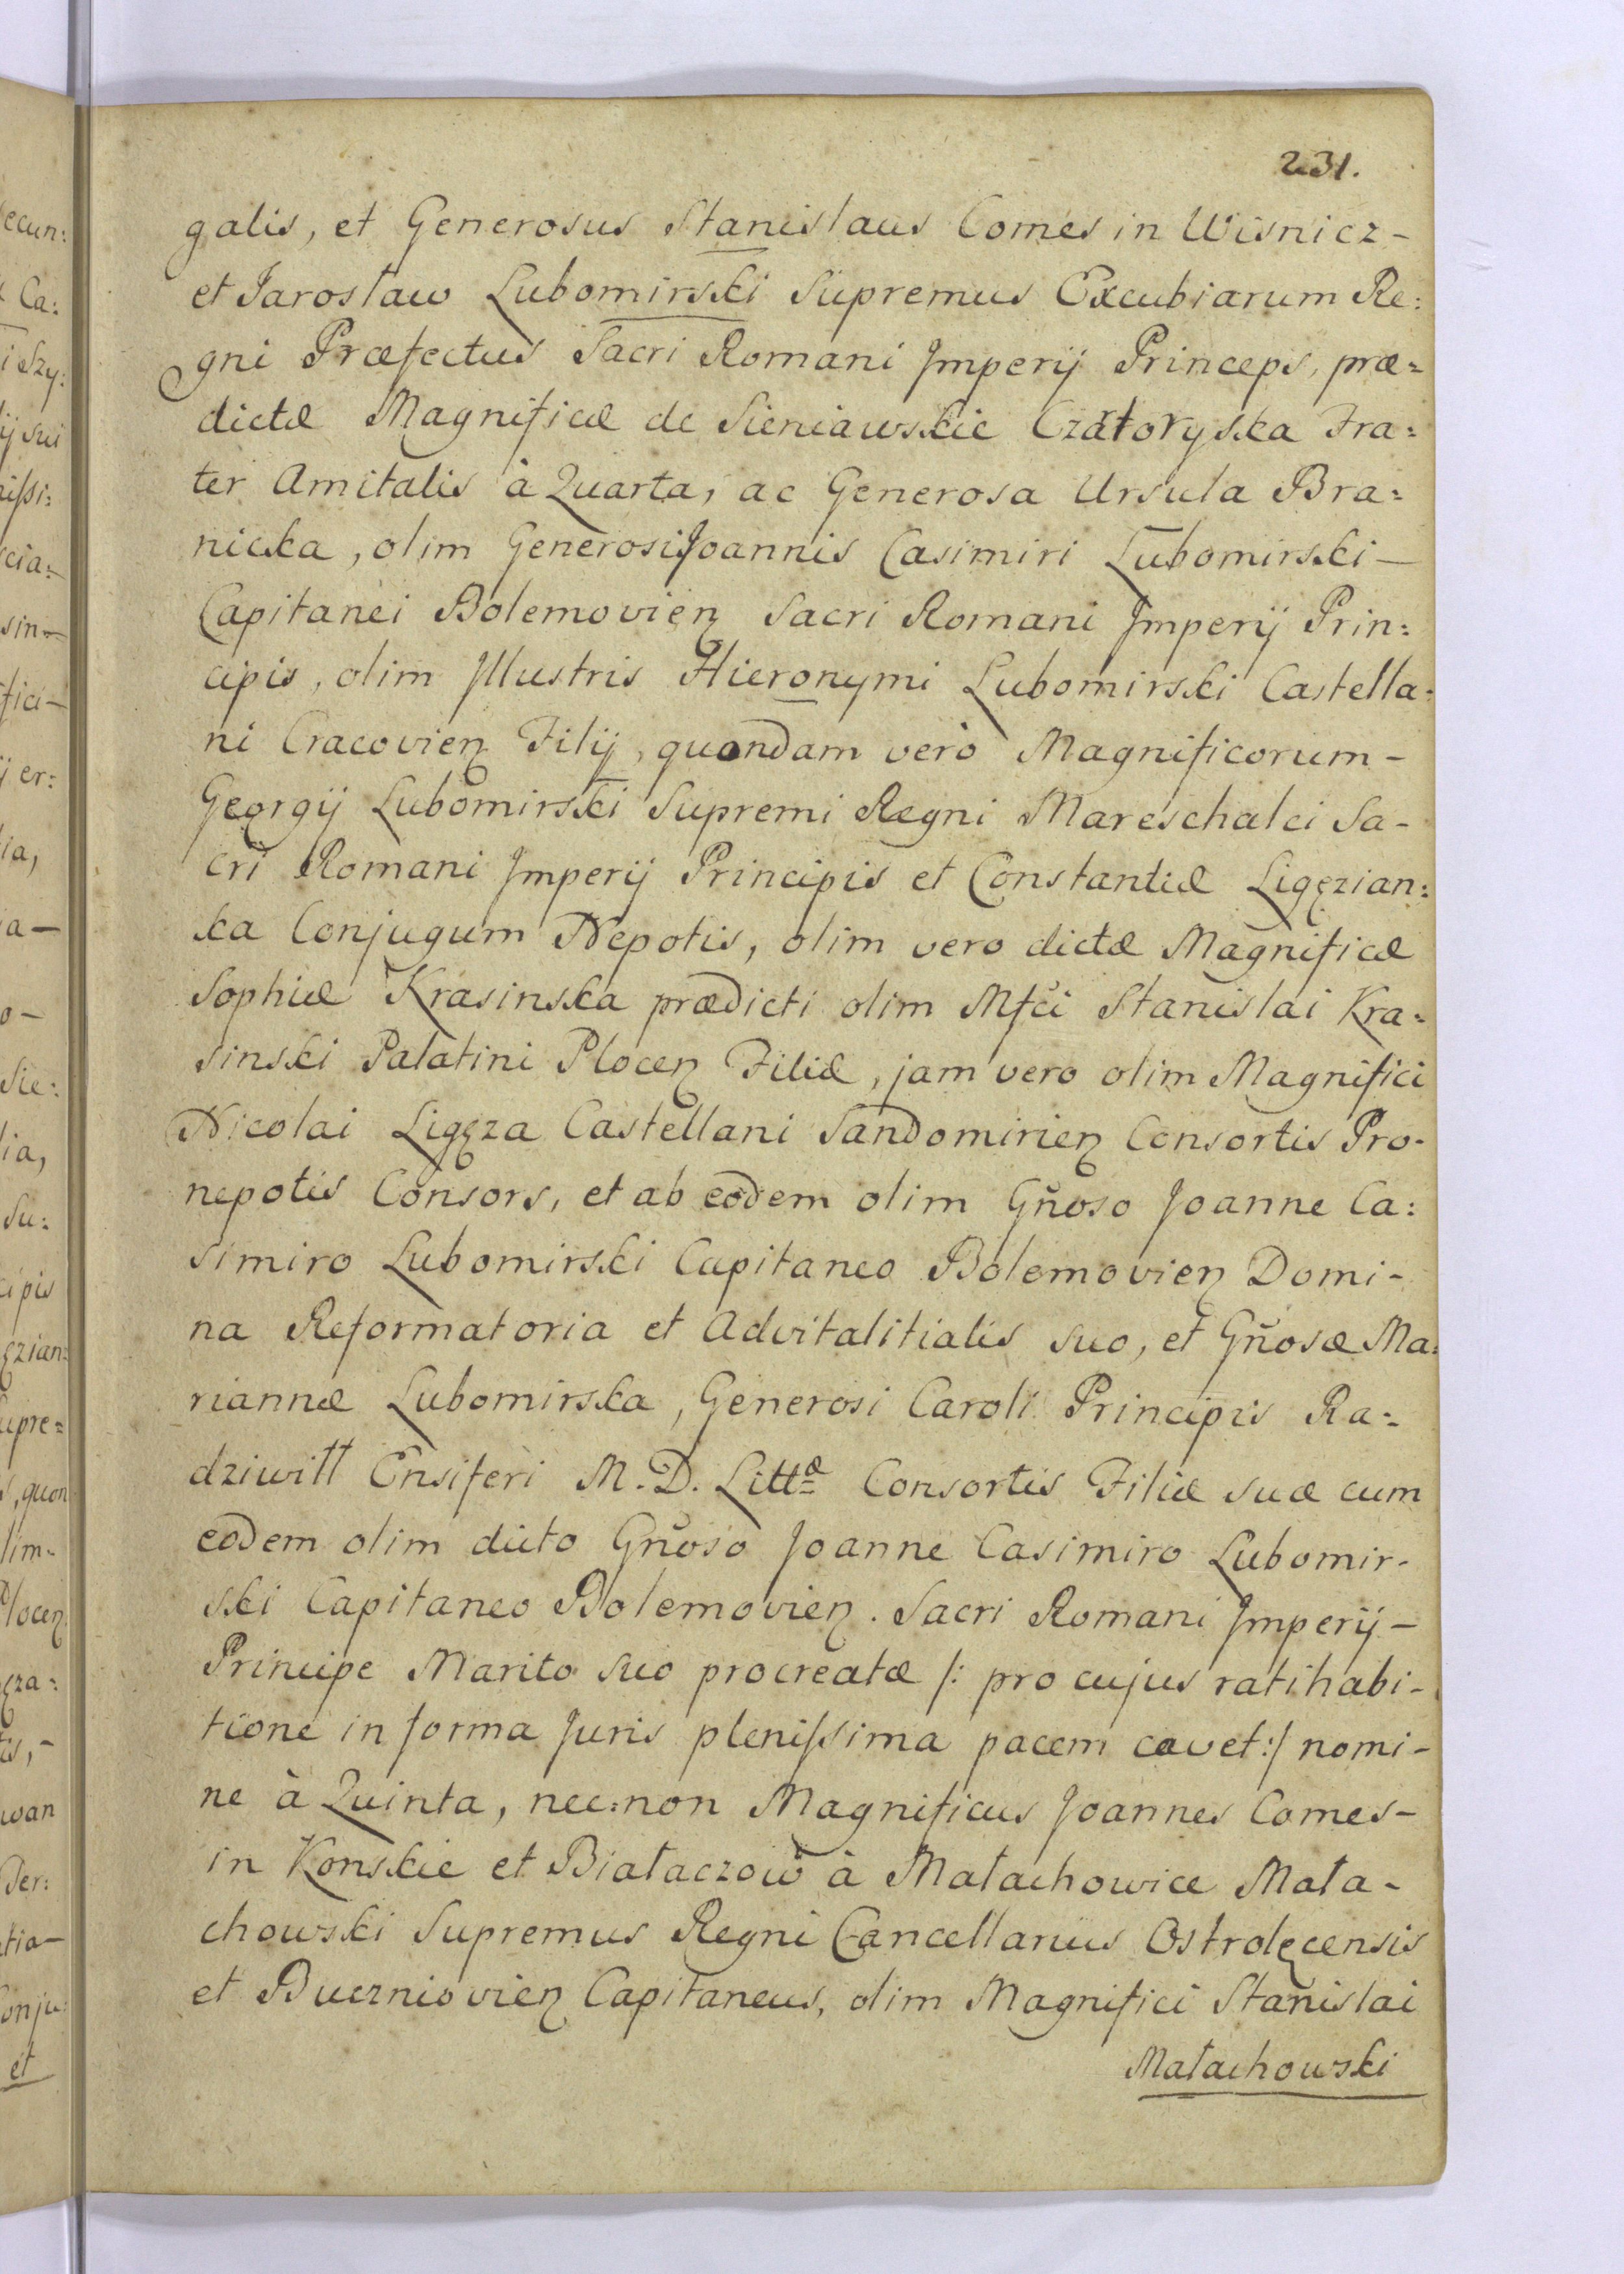 231.
galis, et Generosus Stanislaus Comes in Wisnicz-
et Jarosław Lubomirski Supremus Excubiarum Re:
gni Præfectus Sacri Romani Imperij Princeps, præ=
dictæ Magnificæ de Sieniawskie Czartoryska Fra=
ter Amitalis à Quarta, ac Generosa Ursula Bra=
nicka, olim Generosi Joannis Casimiri Lubomirski-
Capitanei Bolemovien Sacri Romani Imperij Prin:
cipis, olim Illustris Hieronymi Lubomirski Castella:
ni Cracovien Filij, quondam vero Magnificorum-
Georgij Lubomirski Supremi Regni Mareschalci Sa-
cri Romani Imperij Principis et Constantiæ Ligęzian:
ka Conjugum Nepotis, olim vero dictæ Magnificæ
Sophiæ Krasinska prædicti olim Mfci Stanislai Kra=
sinski Palatini Plocen Filiæ, jam vero olim Magnifici
Nicolai Ligęza Castellani Sandomirien Consortis Pro-
nepotis Consors, et ab eodem olim Gñoso Joanne Ca:
simiro Lubomirski Capitaneo Bolemovien Domi-
na Reformatoria et Advitalitialis suo, et Gñosæ Ma:
riannæ Lubomirska, Generosi Caroli Principis Ra=
dziwiłł Ensiferi M. D. Littæ Consortis Filiæ suæ cum
eodem olim dicto Gñoso Joanne Casimiro Lubomir-
ski Capitaneo Bolemovien. Sacri Romani Imperij-
Principe Marito suo procreatæ /: pro cujus ratihabi-
tione in forma Juris plenissima pacem cavet:/ nomi-
ne à Quinta, nec:non Magnificus Joannes Comes-
in Konskie et Białaczow à Małachowice Mała-
chowski Supremus Regni Cancellarius Ostrolęcensis
et Buczniovien Capitaneus, olim Magnifici Stanislai
Małachowski